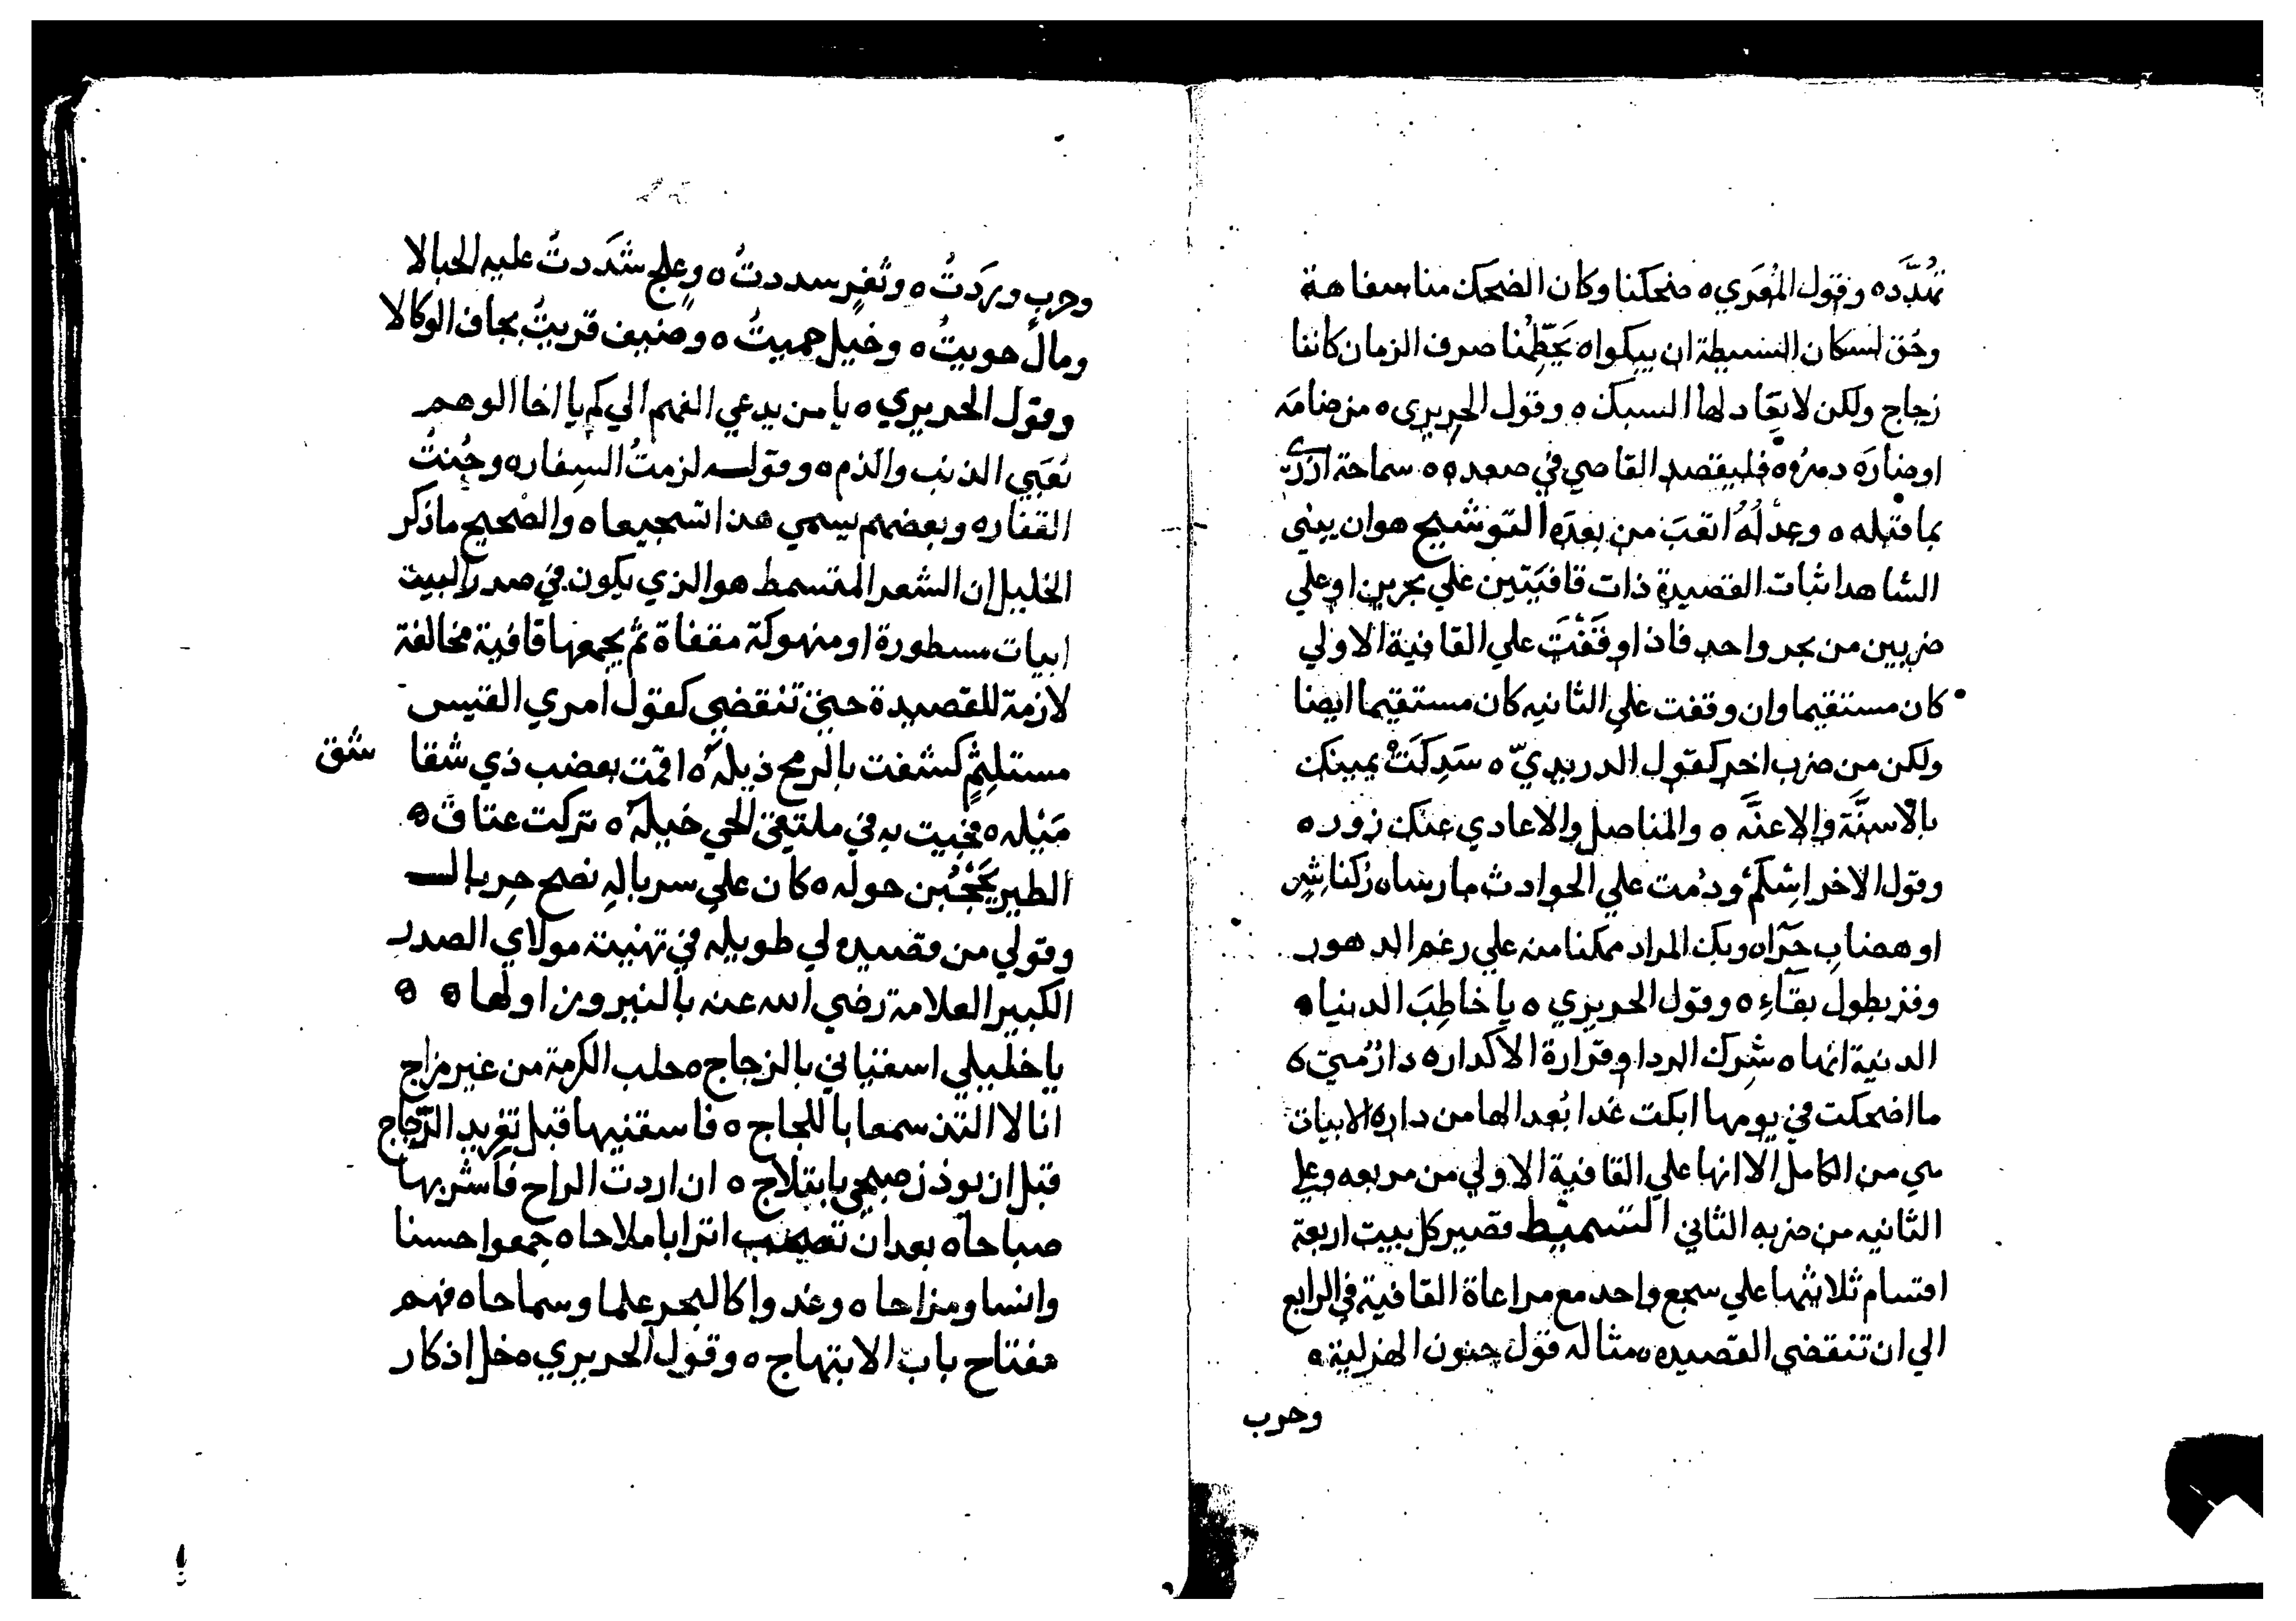 تمُدَّده وقول المُعَري ه ضحكنا وكان الضحك منا سفاهة
وحُق لسكان البسيطة ان يبكوا ه يحَطِّمُنا صرف الزمان كاننا
زجاج ولكن لا يعَاد لها السبك ه وقول الحريري ه من ضامَه
او ضارَه دهرُه ه فليقصد القاضي في صعده ه سماحة ازري
بما قبله ه وعدْلهُ اتعَبَ من بعدَه التوشيح هو ان يبني
الشاهد ابيات القصيدة ذات قافيَتين علي بحرين او علي
ضربين من بحر واحد فاذا وقَفْتَ علي القافية الاولي
كان مستقيما وان وقفت علي الثانيه كان مستقيما ايضا
ولكن من ضرب اخر كقول الدريديّ ه سَدِكَتْ يمينك
بالاسنَّة والاعنَّه ه والمناصل والاعادي عنك زور ه
وقول الاخر اسْلَمْ ودُمت علي الحوادث ما رسا ه ركنا
او هضاب حَرّا ه وبك المراد ممكنا منه علي رغم الدهور
وفز بطول بقآءِ ه وقول الحريري ه يا خاطِبَ الدنيا ه
الدنية انها ه شرك الردا وقرارة الاكدار ه دارٌ متي ه
ما اضحكت في يومها ابكت غدا بُعدا لها من دار ه الابيات
هي من الكامل الا انها علي القافية الاولي من مربعه وعلي
الثانيه من ضربه الثاني التسميط تصيير كل بيت اربعة
اقسام ثلاثتها علي سجع واحد مع مراعاة القافية في الرابع
الي ان تنقضي القصيده ه مثاله قول جنوب الهزلية ه
وحرب
وحربٍ وردَتُ ه وثغرٍ سددتُ ه وعلج شدَدتُ عليه الحبالا
ومال حويتُ ه وخيل حميتُ ه وضيف قريتُ يخاف الوكالا
وقول الحريري ه يا من يدعي الفهم الي كم يا اخا الوهم
تُعَبي الذنب والذم ه وقوله لزمتُ السفار ه وجُبتُ
القفار ه وبعضهم يسمي هذا تسجيعا ه والصحيح ما ذكر
الخليل ان الشعر المتسمط هو الذي يكون في صدر البيت
ابيات مسطورة او منهوكة مقفاة ثم يجمعها قافية مخالفة
لازمة للقصيدة حتي تنقضي كقول امري القيس
مستلئِمٍ كشفت بالرمح ذيله ه اقمت بعضب ذي شقا شق
مَيله ه فجيت به في ملتقي الحي خيلَه ه تركت عتاق ه
الطير يَحْجُبن حوله ه كان علي سرباله نضح جريال
وقولي من قصيده لي طويله في تهنية مولاي الصدر
الكبير العلامة رضي الله عنه بالنيروز اولها ه ه
يا خليلي اسقياني بالزجاج ه حلب الكرمة من غير مزاج
انا لا التذ سمعا باللجاج ه فاسقنيها قبل تغريد الدّجاج
قبل ان يوذن صبحي بابتلاج ه ان اردت الراح فاشربها
صباحا ه بعد ان تصحب اترابا ملاحا ه جمعوا حسنا
وانسا ومزاحا ه وغدوا كالبحر علما وسماحا ه فهم
مفتاح باب الابتهاج ه وقول الحريري ه خل اذكار